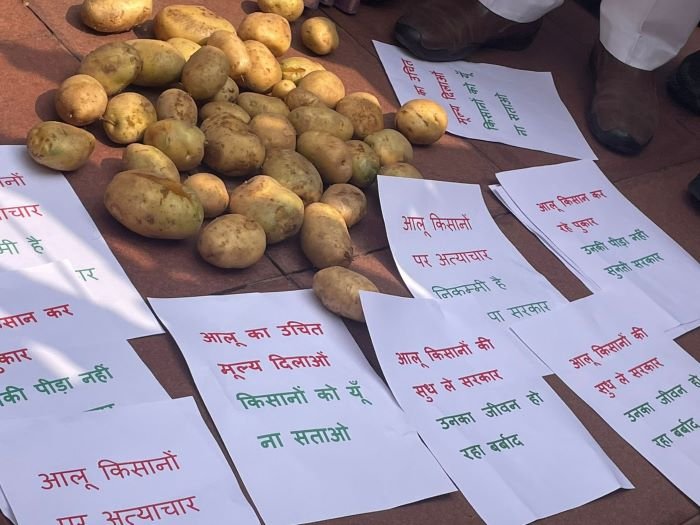 आलू का उचित
मूल्य दिलाओं
किसानों को यूँ
ना सताओ
सानों
अत्याचार
म्मी है
कार
आलू किसानों
पर अत्याचार
निकम्मी है
पा सरकार
आलू किसान कर
रहे पुकार
उनकी पीड़ा नहीं
सुनतो सरकार
सान कर
कार
की पीड़ा नहीं
आलू का उचित
मूल्य दिलाओं
किसानों को यूँ
ना सताओ
आलू किसानों की
सुध ले सरकार
उनका जीवन हो
रहा बर्बाद
आलू किसानों की
सुध ले सरकार
उनका जीवन हो
रहा बर्बाद
आलू किसानों
पर अत्याचार